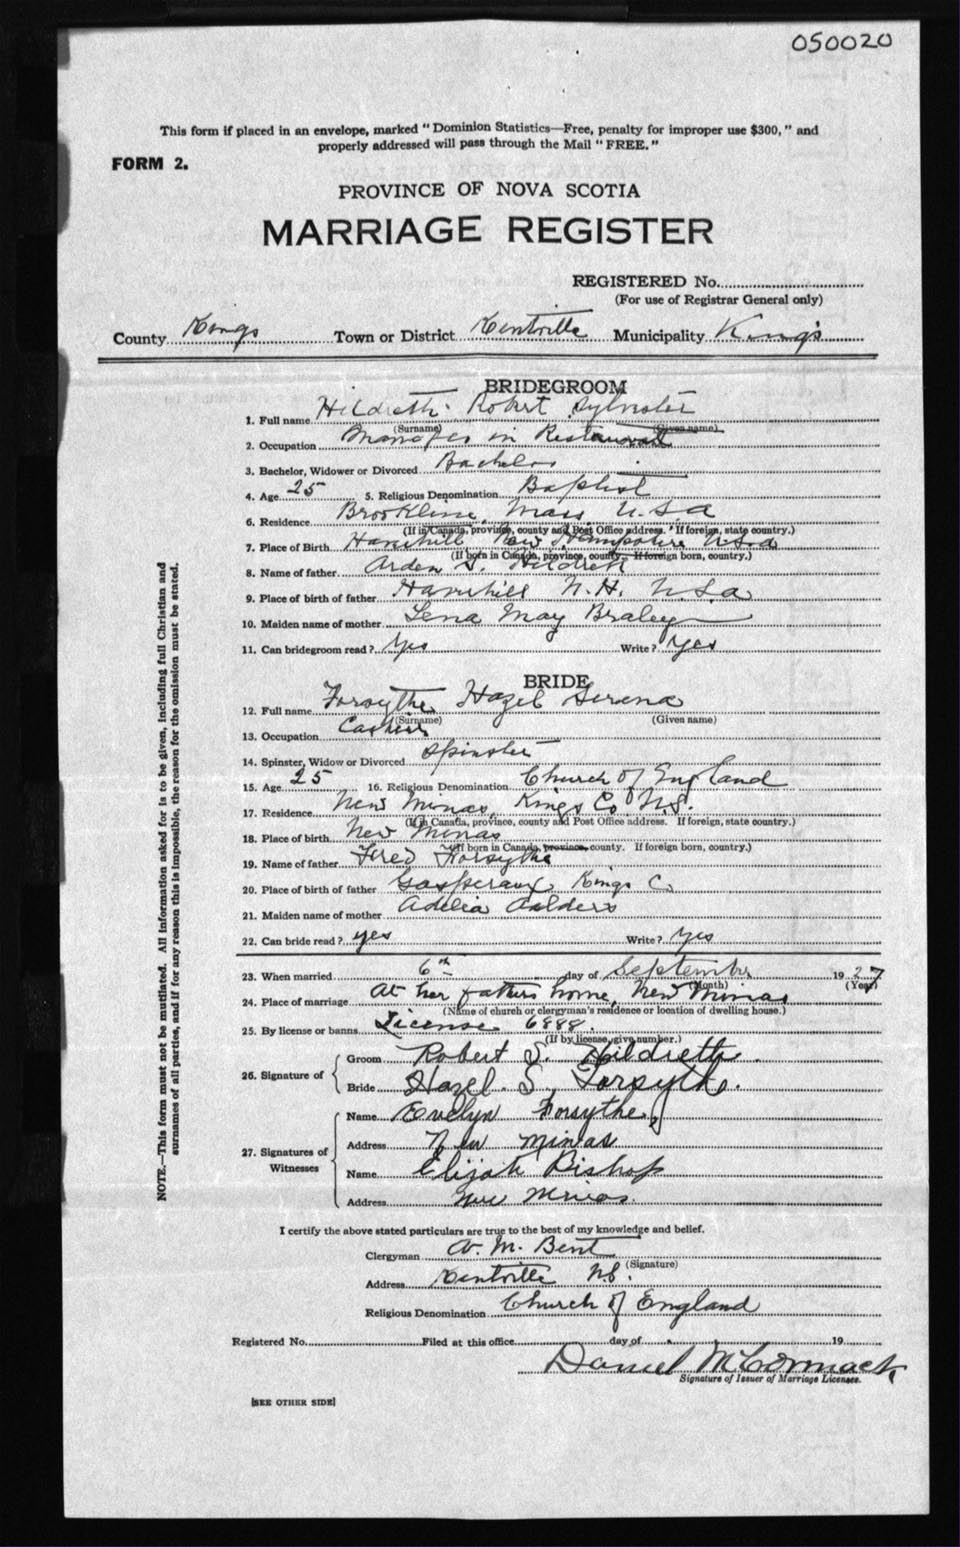 050020
This form if placed in an envelope, marked "Dominion Statistics—Free, penalty for improper use $300," and
properly addressed will pass through the Mail "FREE."
FORM 2.
PROVINCE OF NOVA SCOTIA
MARRIAGE REGISTER
REGISTERED No.
(For use of Registrar General only)
County Kings Town or District Kentville Municipality King's
BRIDEGROOM
1. Full name Hildreth Robert Sylvester
(Surname) (Given name)
2. Occupation Manager in Restaurant
3. Bachelor, Widower or Divorced Bachelor
4. Age 25 5. Religious Denomination Baptist
6. Residence Brookline, Mass U.S.a
(If in Canada, province, county and Post Office address. If foreign, state country.)
7. Place of Birth New Hampshire U.S.a
(If born in Canada, province, county. If foreign born, country.)
8. Name of father Arden S. Hildreth
9. Place of birth of father N.H. U.S.a
10. Maiden name of mother Lena May Braley
11. Can bridegroom read? Yes Write? Yes
BRIDE
12. Full name Forsythe Hazel Serena
(Surname) (Given name)
13. Occupation Cashier
14. Spinster, Widow or Divorced Spinster
15. Age 25 16. Religious Denomination Church of England
17. Residence New Minas, Kings Co N.S.
(If in Canada, province, county and Post Office address. If foreign, state country.)
18. Place of birth New Minas
(If born in Canada, province, county. If foreign born, country.)
19. Name of father Fred Forsythe
20. Place of birth of father Gaspereaux Kings C
21. Maiden name of mother Adelia Aalders
22. Can bride read? yes Write? Yes
23. When married 6th day of September 1927
(Month) (Year)
24. Place of marriage At her fathers home, New Minas
(Name of church or clergyman's residence or location of dwelling house.)
25. By license or banns License 6888.
(If by license, give number.)
26. Signature of Groom Robert S. Hildreth.
Bride Hazel. S. Forsythe.
27. Signatures of Witnesses Name Evelyn Forsythe
Address New Minas
Name Elijah Bishop
Address New Minas.
I certify the above stated particulars are true to the best of my knowledge and belief.
Clergyman A. M. Bent
(Signature)
Address Kentville NS.
Religious Denomination Church of England
Registered No. Filed at this office day of 19
Daniel McCormack,
Signature of Issuer of Marriage Licenses.
[SEE OTHER SIDE]
NOTE.—This form must not be mutilated. All information asked for is to be given, including full Christian and
surnames of all parties, and if for any reason this is impossible, the reason for the omission must be stated.